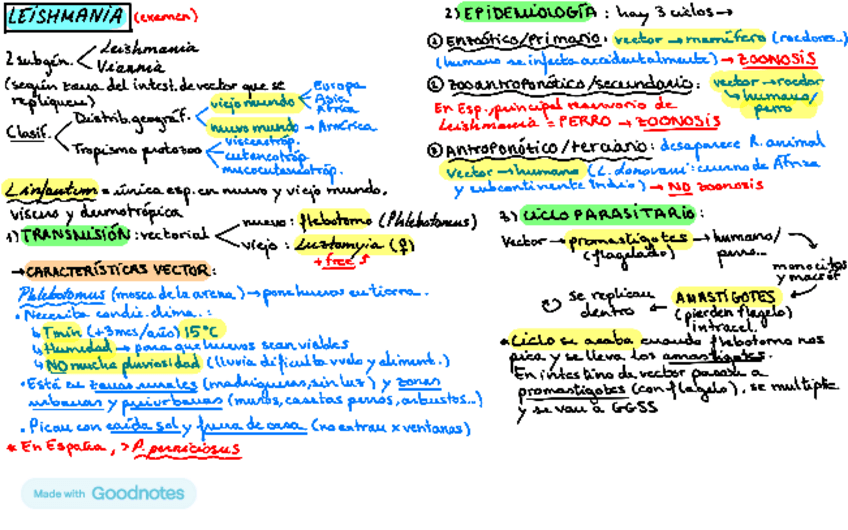 LEISHMANIA (examen)
2 subgén. Leishmania
Viannia
(según zona del intest. de vector que se
repliquen)
Clasif. Distrib. geográf. viejo mundo Europa
Asia
África
nuevo mundo → América
Tropismo protozoo viscerotróp.
cutaneotróp.
mucocutaneotróp.
L. infantum = única esp. en nuevo y viejo mundo,
viscero y dermotrópica
1) TRANSMISIÓN: vectorial nuevo: flebotomo (Phlebotomus)
viejo: Lutzomyia (♀)
+ free
→ CARACTERÍSTICAS VECTOR:
Phlebotomus (mosca de la arena) → pone huevos en tierra.
• Necesita condic. clima.:
↳ Tmín (+3mes/año) 15°C
↳ Humedad → para que huevos sean viables
↳ NO mucha pluviosidad (lluvia dificulta vuelo y aliment.)
• Está en zonas rurales (madrigueras, sin luz) y zonas
urbanas y periurbanas (muros, casetas perros, arbustos...)
• Pican con caída sol y fuera de casa (no entran x ventanas)
* En España, > P. perniciosus
2) EPIDEMIOLOGÍA: hay 3 ciclos →
① Enzoótico/primario: vector → mamífero (roedores..)
(humano se infecta accidentalmente) → ZOONOSIS
② Zooantroponótico/secundario: vector → roedor
→ humano/
perro
En Esp., principal reservorio de
Leishmania = PERRO → ZOONOSIS
③ Antroponótico/terciario: desaparece R. animal
vector → humano (L. donovani: cuerno de África
y subcontinente Indio) → NO zoonosis
3) CICLO PARASITARIO:
Vector → promastigotes → humano/
(flagelado) perro...
monocitos
y macróf
AMASTIGOTES
(pierden flagelo)
intracel.
se replican
dentro
* Ciclo se acaba cuando flebotomo nos
pica y se lleva los amastigotes.
En intestino de vector pasan a
promastigotes (con flagelo), se multiplic
y se van a GGSS
Made with Goodnotes